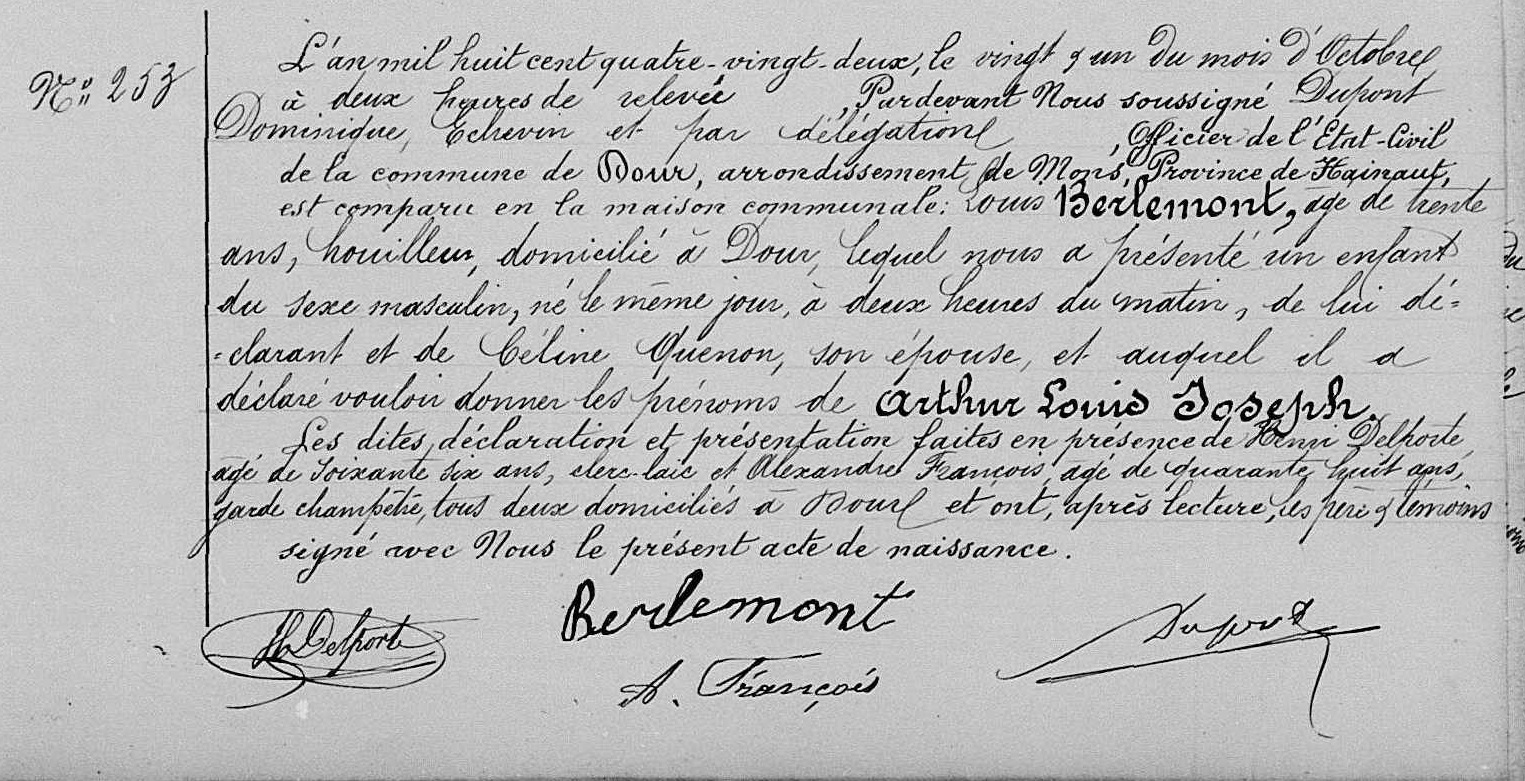 Nº 253
L'an mil huit cent quatre-vingt-deux, le vingt & un du mois d'Octobre
à deux heures de relevée, Pardevant Nous soussigné Dupont
Dominique, Echevin et par délégation, Officier de l'Etat-Civil
de la commune de Dour, arrondissement de Mons, Province de Hainaut,
est comparu en la maison communale: Louis Berlemont, âgé de trente
ans, houilleur, domicilié à Dour, lequel nous a présenté un enfant
du sexe masculin, né le même jour, à deux heures du matin, de lui dé=
=clarant et de Céline Quenon, son épouse, et auquel il a
déclaré vouloir donner les prénoms de Arthur Louis Joseph.
Les dites déclaration et présentation faites en présence de Henri Delporte
âgé de soixante six ans, clerc-laïc et Alexandre François, âgé de quarante huit ans,
garde champêtre, tous deux domiciliés à Dour et ont, après lecture, les père & témoins
signé avec Nous le présent acte de naissance.
H. Delporte
Berlemont
Dupont
A. François